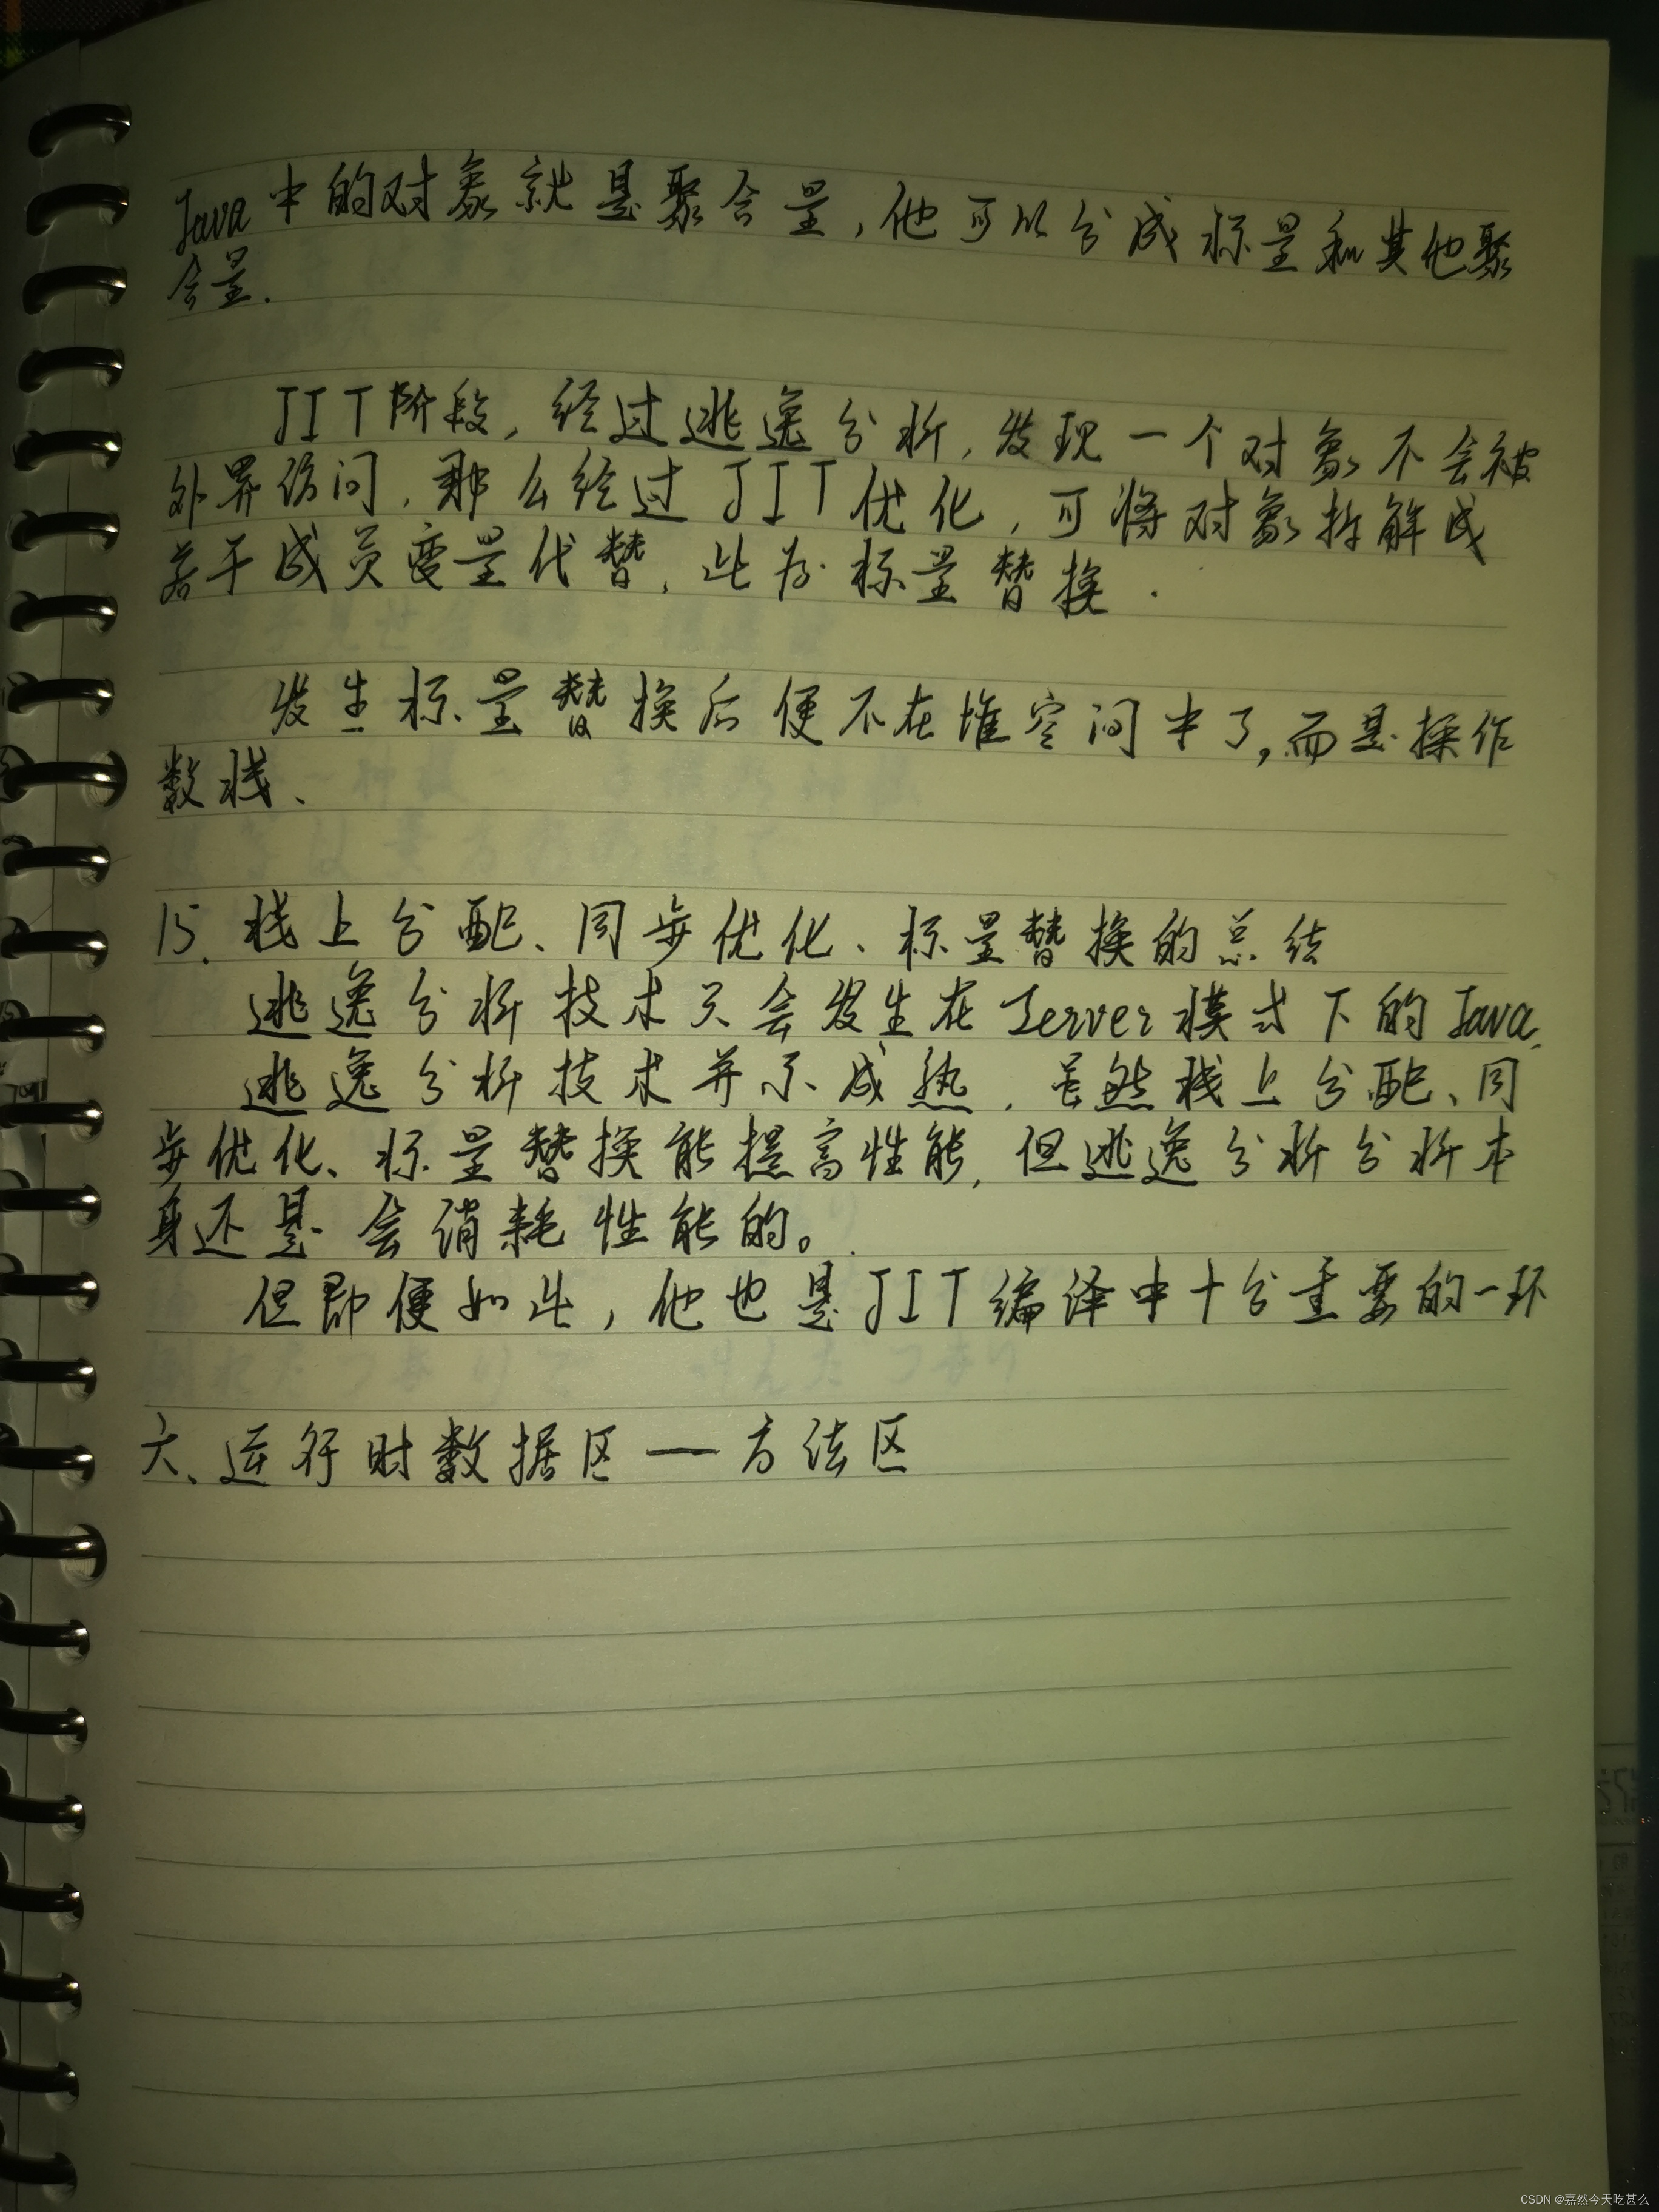 Java中的对象就是聚合量,他可以分成标量和其他聚
合量.
JIT阶段,经过逃逸分析,发现一个对象不会被
外界访问,那么经过JIT优化,可将对象拆解成
若干成员变量代替,此为标量替换.
发生标量替换后便不在堆空间中了,而是操作
数栈、
15.栈上分配、同步优化、标量替换的总结
逃逸分析技术只会发生在Server模式下的Java.
逃逸分析技术并不成熟,虽然栈上分配、同
步优化、标量替换能提高性能,但逃逸分析分析本
身还是会消耗性能的。
但即便如此,他也是JIT编译中十分重要的一环
六、运行时数据区——方法区
CSDN @嘉然今天吃甚么